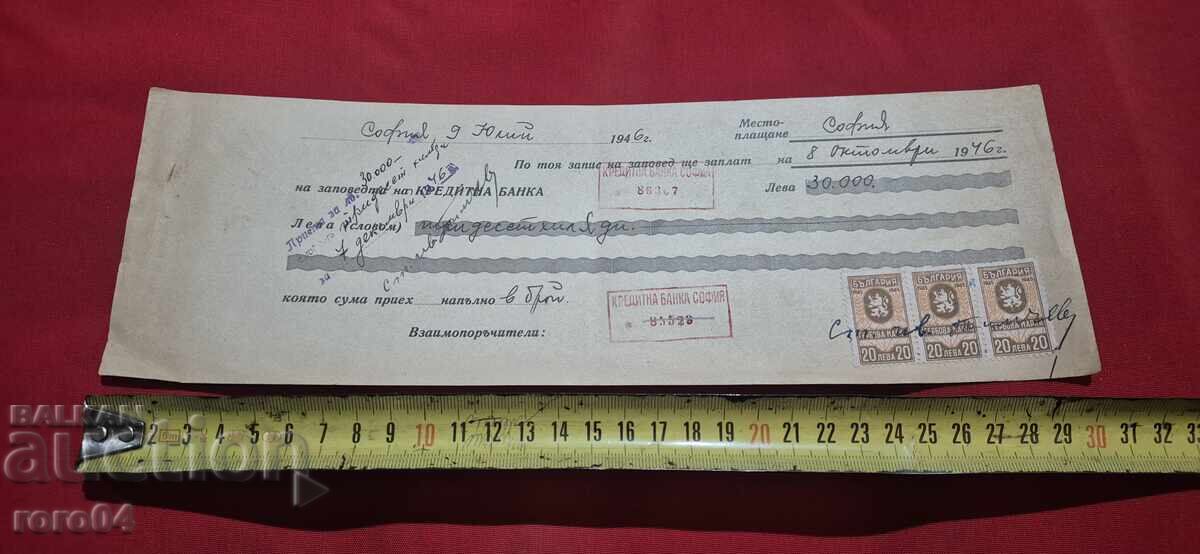 София, 9 Юлий 1946 г.
Место-
плащане София
По тоя запис на заповед ще заплат на 8 октомври 1946 г.
КРЕДИТНА БАНКА СОФИЯ
на заповедта на КРЕДИТНА БАНКА
Лева 30.000.
Лева (словом) тридесет хиляди.
30.000-
тридесет хиляди
за 7 декември 1946
която сума приех напълно в брой.
КРЕДИТНА БАНКА СОФИЯ
Взаимопоръчители:
БЪЛГАРИЯ БЪЛГАРИЯ БЪЛГАРИЯ
1945 1945 1945
ГЕРБОВА МАРКА ГЕРБОВА МАРКА ГЕРБОВА МАРКА
20 ЛЕВА 20 20 ЛЕВА 20 20 ЛЕВА 20
2 3 4 5 6 7 8 9 10 11 12 13 14 15 16 17 18 19 20 21 22 23 24 25 26 27 28 29 30 31 32 33
BALKAN
auction
roro04